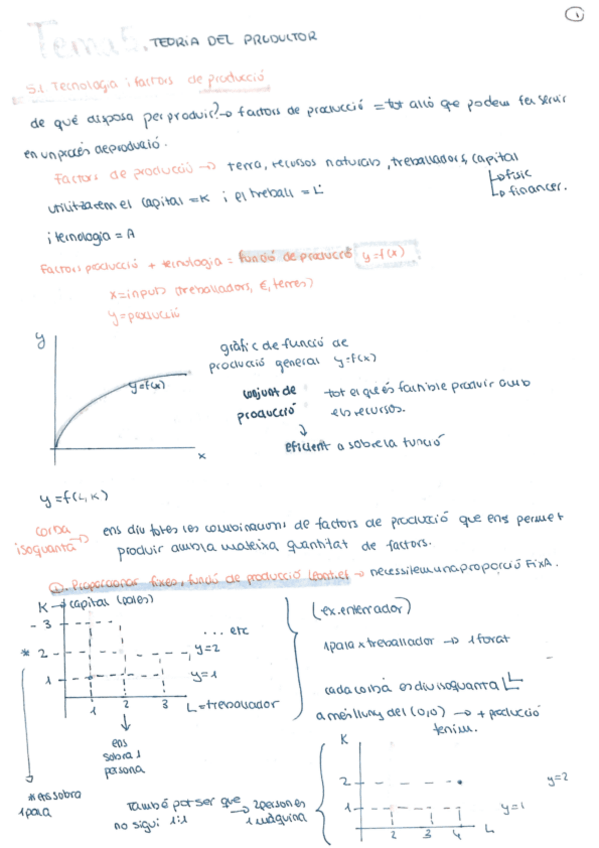 1
Tema 5. TEORIA DEL PRODUCTOR
5.1 Tecnologia i factors de producció
de què disposa per produir? → factors de producció = tot allò que podem fer servir
en un procés de producció.
Factors de producció → terra, recursos naturals, treballadors, capital
↳ físic
↳ financer.
utilitzarem el capital = K i el treball = L
i tecnologia = A
Factors producció + tecnologia = funció de producció y=f(x)
x=inputs (treballadors, €, terres)
y=producció
y
y=f(x)
x
gràfic de funció de
producció general y=f(x)
conjunt de
producció
tot el que és factible produir amb
els recursos.
↓
eficient a sobre la funció
y=f(L,K)
corba
isoquanta →
ens diu totes les combinacions de factors de producció que ens permet
produir amb la mateixa quantitat de factors.
①. Proporcions fixes, funció de producció Leontief → necessitem una proporció FIXA.
K → capital (pales)
3
* 2
1
... etc
y=2
y=1
1 2 3 L=treballador
↓
ens
sobra 1
persona
* ens sobra
1 pala
(ex. enterrador)
1 pala x treballador → 1 forat
cada corba es diu isoquanta
a més lluny del (0,0) → + producció
tenim.
També pot ser que
no sigui 1:1
→ 2 persones
1 màquina
K
2
1
2 3 4 L
y=2
y=1